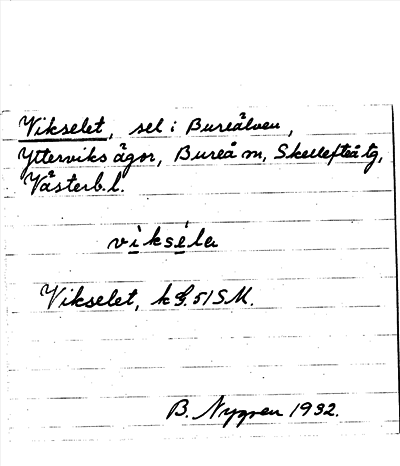 Vikselet, sel i Bureälven,
Ytterviks ägor, Bureå sn, Skellefteå tg,
Västerb. l.
viksela
Vikselet, k bl. 51 S.M.
B. Nygren 1932.